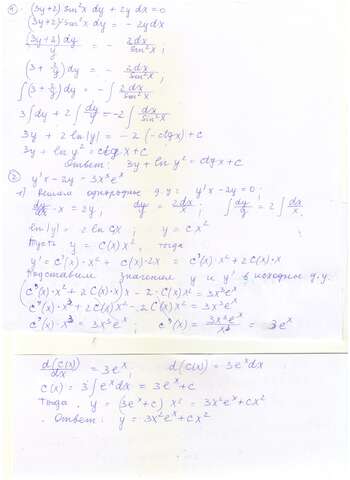 1. (3y+2) sin²x dy + 2y dx = 0
(3y+2) sin²x dy = - 2y dx
(3y+2)dy / y = - 2dx / sin²x ;
(3 + 2/y) dy = - 2dx / sin²x ;
∫(3 + 2/y) dy = - ∫ 2dx / sin²x ;
3∫dy + 2∫ dy/y = -2∫ dx / sin²x
3y + 2 ln|y| = - 2 (- ctgx) + c
3y + ln y² = ctgx + c
Ответ: 3y + ln y² = ctgx + c
2) y'x - 2y = 3x³eˣ
1) Решаем однородное д.у.: y'x - 2y = 0 ;
dy/dx · x = 2y ; dy/y = 2dx/x ; ∫ dy/y = 2∫ dx/x .
ln|y| = 2 ln Cx ; y = cx²
Пусть y = C(x) x², тогда
y' = c'(x) · x² + c(x) · 2x = c'(x) · x² + 2c(x) · x
Подставим значения y и y' в исходное д.у.
(c'(x) · x² + 2C(x) · x)x - 2 · C(x) x² = 3x³eˣ
c'(x) · x³ + 2C(x) x² - 2C(x) x² = 3x³eˣ
c'(x) · x³ = 3x³eˣ ; c'(x) = 3x³eˣ / x³ = 3eˣ
d(C(x)) / dx = 3eˣ ; d(C(x)) = 3eˣdx
C(x) = 3∫eˣdx = 3eˣ + c
Тогда, y = (3eˣ + c) x² = 3x²eˣ + cx²
Ответ: y = 3x²eˣ + cx²